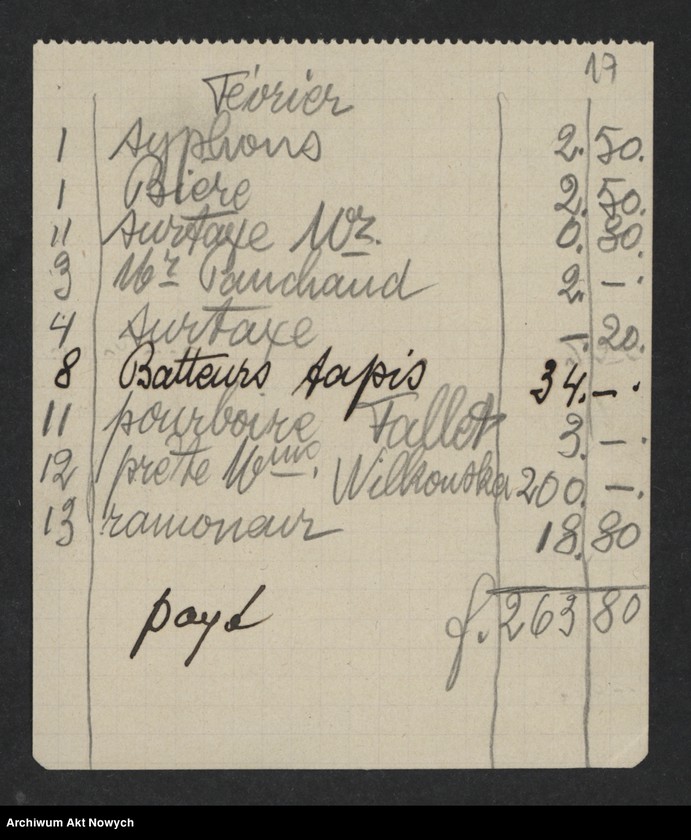 17
Février
1 syphons 2.50.
1 Bière 2.50.
11 surtaxe Mr. 0.80.
3 Mr Panchaud 2.—.
4 surtaxe —.20.
8 Batteurs tapis 34.—.
11 pourboire Fallet 3.—.
12 prête Mme. Wilkouska 200.—.
13 ramoneur 18.80
payé f. 263 80
Archiwum Akt Nowych